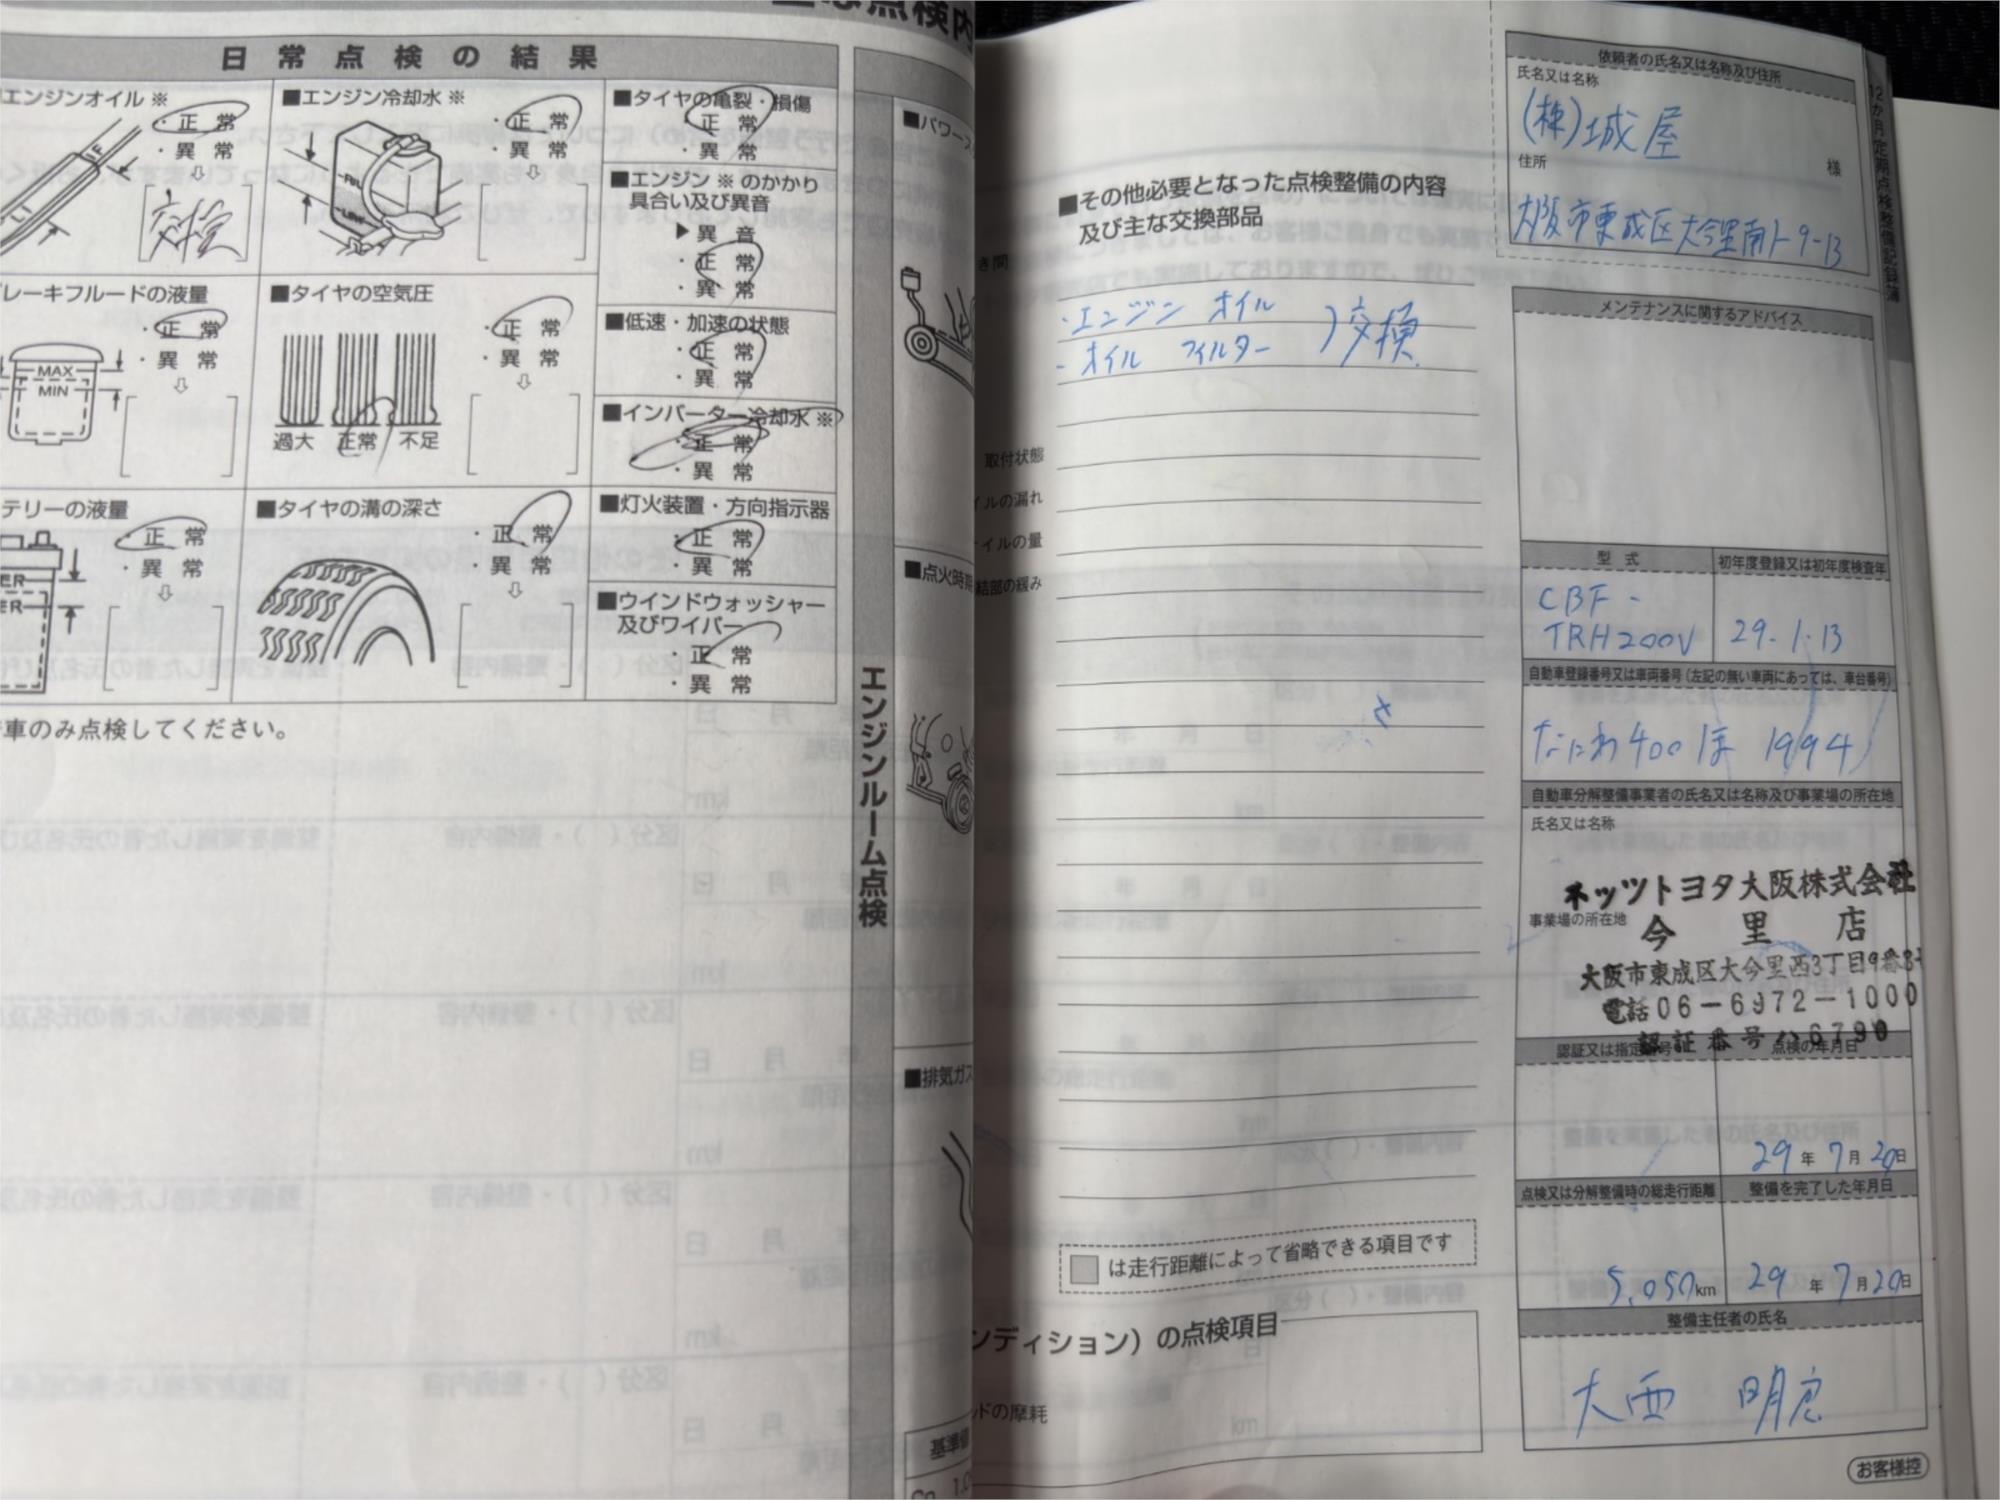 日常点検の結果
エンジンオイル ※
・正 常
・異 常
交換
■エンジン冷却水 ※
・正 常
・異 常
■タイヤの亀裂・損傷
・正 常
・異 常
■エンジン ※ のかかり
具合い及び異音
▶異 音
・正 常
・異 常
レーキフルードの液量
・正 常
・異 常
MAX
MIN
■タイヤの空気圧
・正 常
・異 常
過大 正常 不足
■低速・加速の状態
・正 常
・異 常
■インバーター冷却水 ※
・正 常
・異 常
テリーの液量
・正 常
・異 常
■タイヤの溝の深さ
・正 常
・異 常
■灯火装置・方向指示器
・正 常
・異 常
■ウインドウォッシャー
及びワイパー
・正 常
・異 常
車のみ点検してください。
エンジンルーム点検
■パワース
■点火時期
■排気ガス
基準値
■その他必要となった点検整備の内容
及び主な交換部品
き間
・エンジン オイル
・オイル フィルター ）交換
取付状態
イルの漏れ
イルの量
結部の緩み
は走行距離によって省略できる項目です
ンディション）の点検項目
ッドの摩耗
12か月定期点検整備記録簿
依頼者の氏名又は名称及び住所
氏名又は名称
(株)城屋
様
住所
大阪市東成区大今里南1-9-13
メンテナンスに関するアドバイス
型 式
初年度登録又は初年度検査年
CBF-
TRH200V
29.1.13
自動車登録番号又は車両番号（左記の無い車両にあっては、車台番号）
なにわ400ほ 1994
自動車分解整備事業者の氏名又は名称及び事業場の所在地
氏名又は名称
ネッツトヨタ大阪株式会社
事業場の所在地
今里店
大阪市東成区大今里西3丁目9番8号
電話06-6972-1000
認証番号ハ6790
認証又は指定番号
点検の年月日
29年7月20日
点検又は分解整備時の総走行距離
整備を完了した年月日
5,050km
29年7月20日
整備主任者の氏名
大西
お客様控